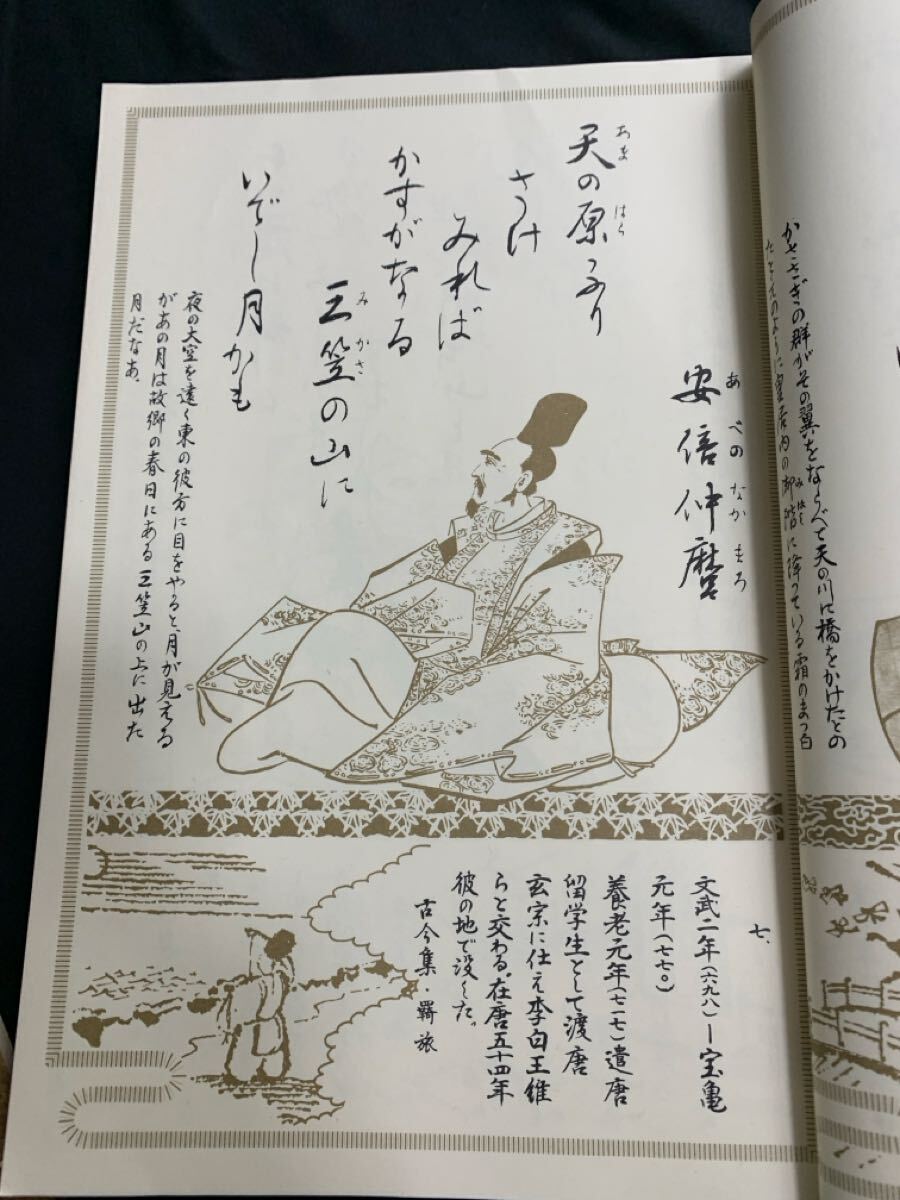 かささぎの群がその翼をならべて天の川に橋をかけたとの
たとえのように皇居内の御階に降っている霜のまっ白
みはし
安倍仲麿
あべの なかまろ
天の原ふり
あま はら
さけ
みれば
かすがなる
三笠の山に
みかさ
いでし月かも
夜の大空を遠く東の彼方に目をやると、月が見える
があの月は故郷の春日にある三笠山の上に出た
月だなあ。
七、
文武二年(六九八)ー宝亀
元年(七七〇)
養老元年(七一七)遣唐
留学生として渡唐
玄宗に仕え李白王維
らと交わる。在唐五十四年
彼の地で没した。
古今集・羇旅